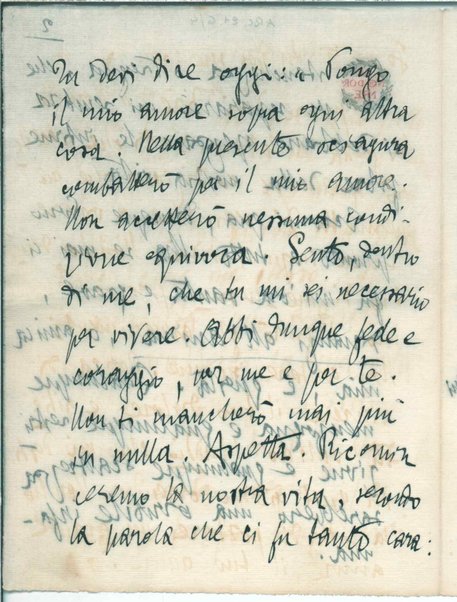 2
Tu devi dire oggi: « Pongo
il mio amore sopra ogni altra
cosa. Nella presente sciagura
combatterò per il mio amore.
Non accetterò nessuna condi-
zione equivoca. Sento, dentro
di me, che tu mi sei necessario
per vivere. Abbi dunque fede e
coraggio, per me e per te.
Non ti mancherò mai più
in nulla. Aspetta. Ricomin
ceremo la nostra vita secondo
la parola che ci fu tanto cara: